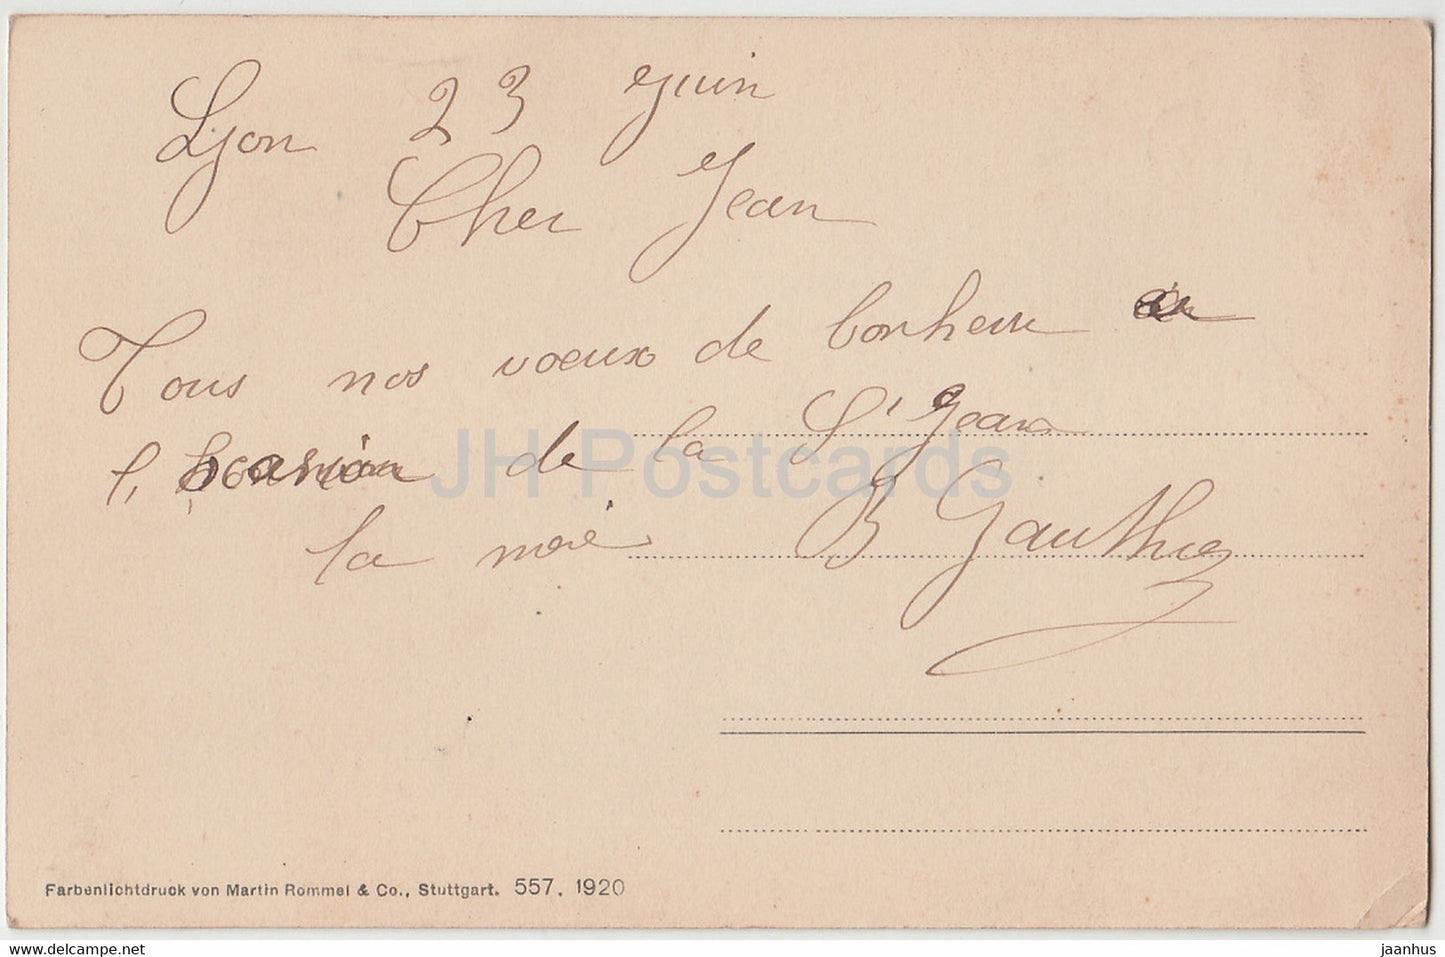 Lyon 23 Juin
Cher Jean
Tous nos voeux de bonheur à
l'occasion de la St Jean
B Gauthier
JH Postcards
Farbenlichtdruck von Martin Rommel & Co., Stuttgart. 557. 1920
www.delcampe.net
jaanhus